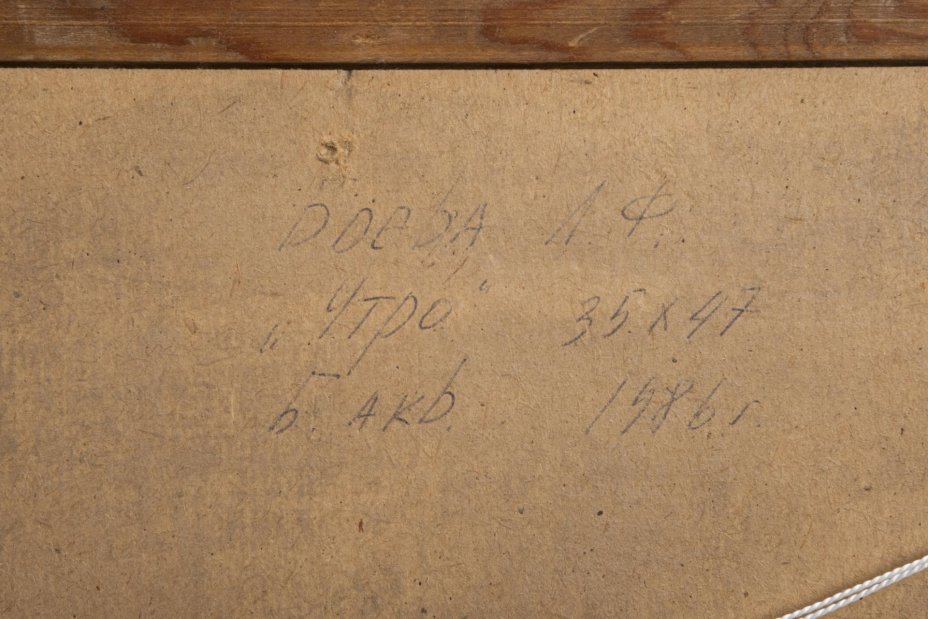 РОЕВА Л.Ф.
„Утро“ 35х47
б. акв. 1986 г.